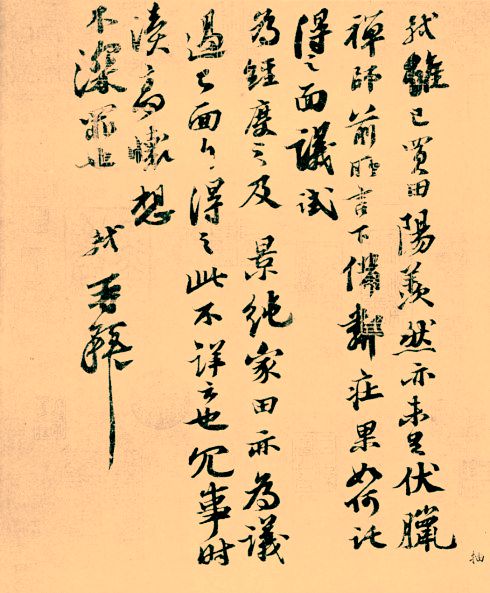 軾雖已買田陽羨然亦未足伏臘
禪師前所言下備鄰莊果如何託
得之面議試
為經度之及 景純家田亦為議
過已面白得之此不詳云也冗事時
瀆高懷想
不深罪也 軾再拜